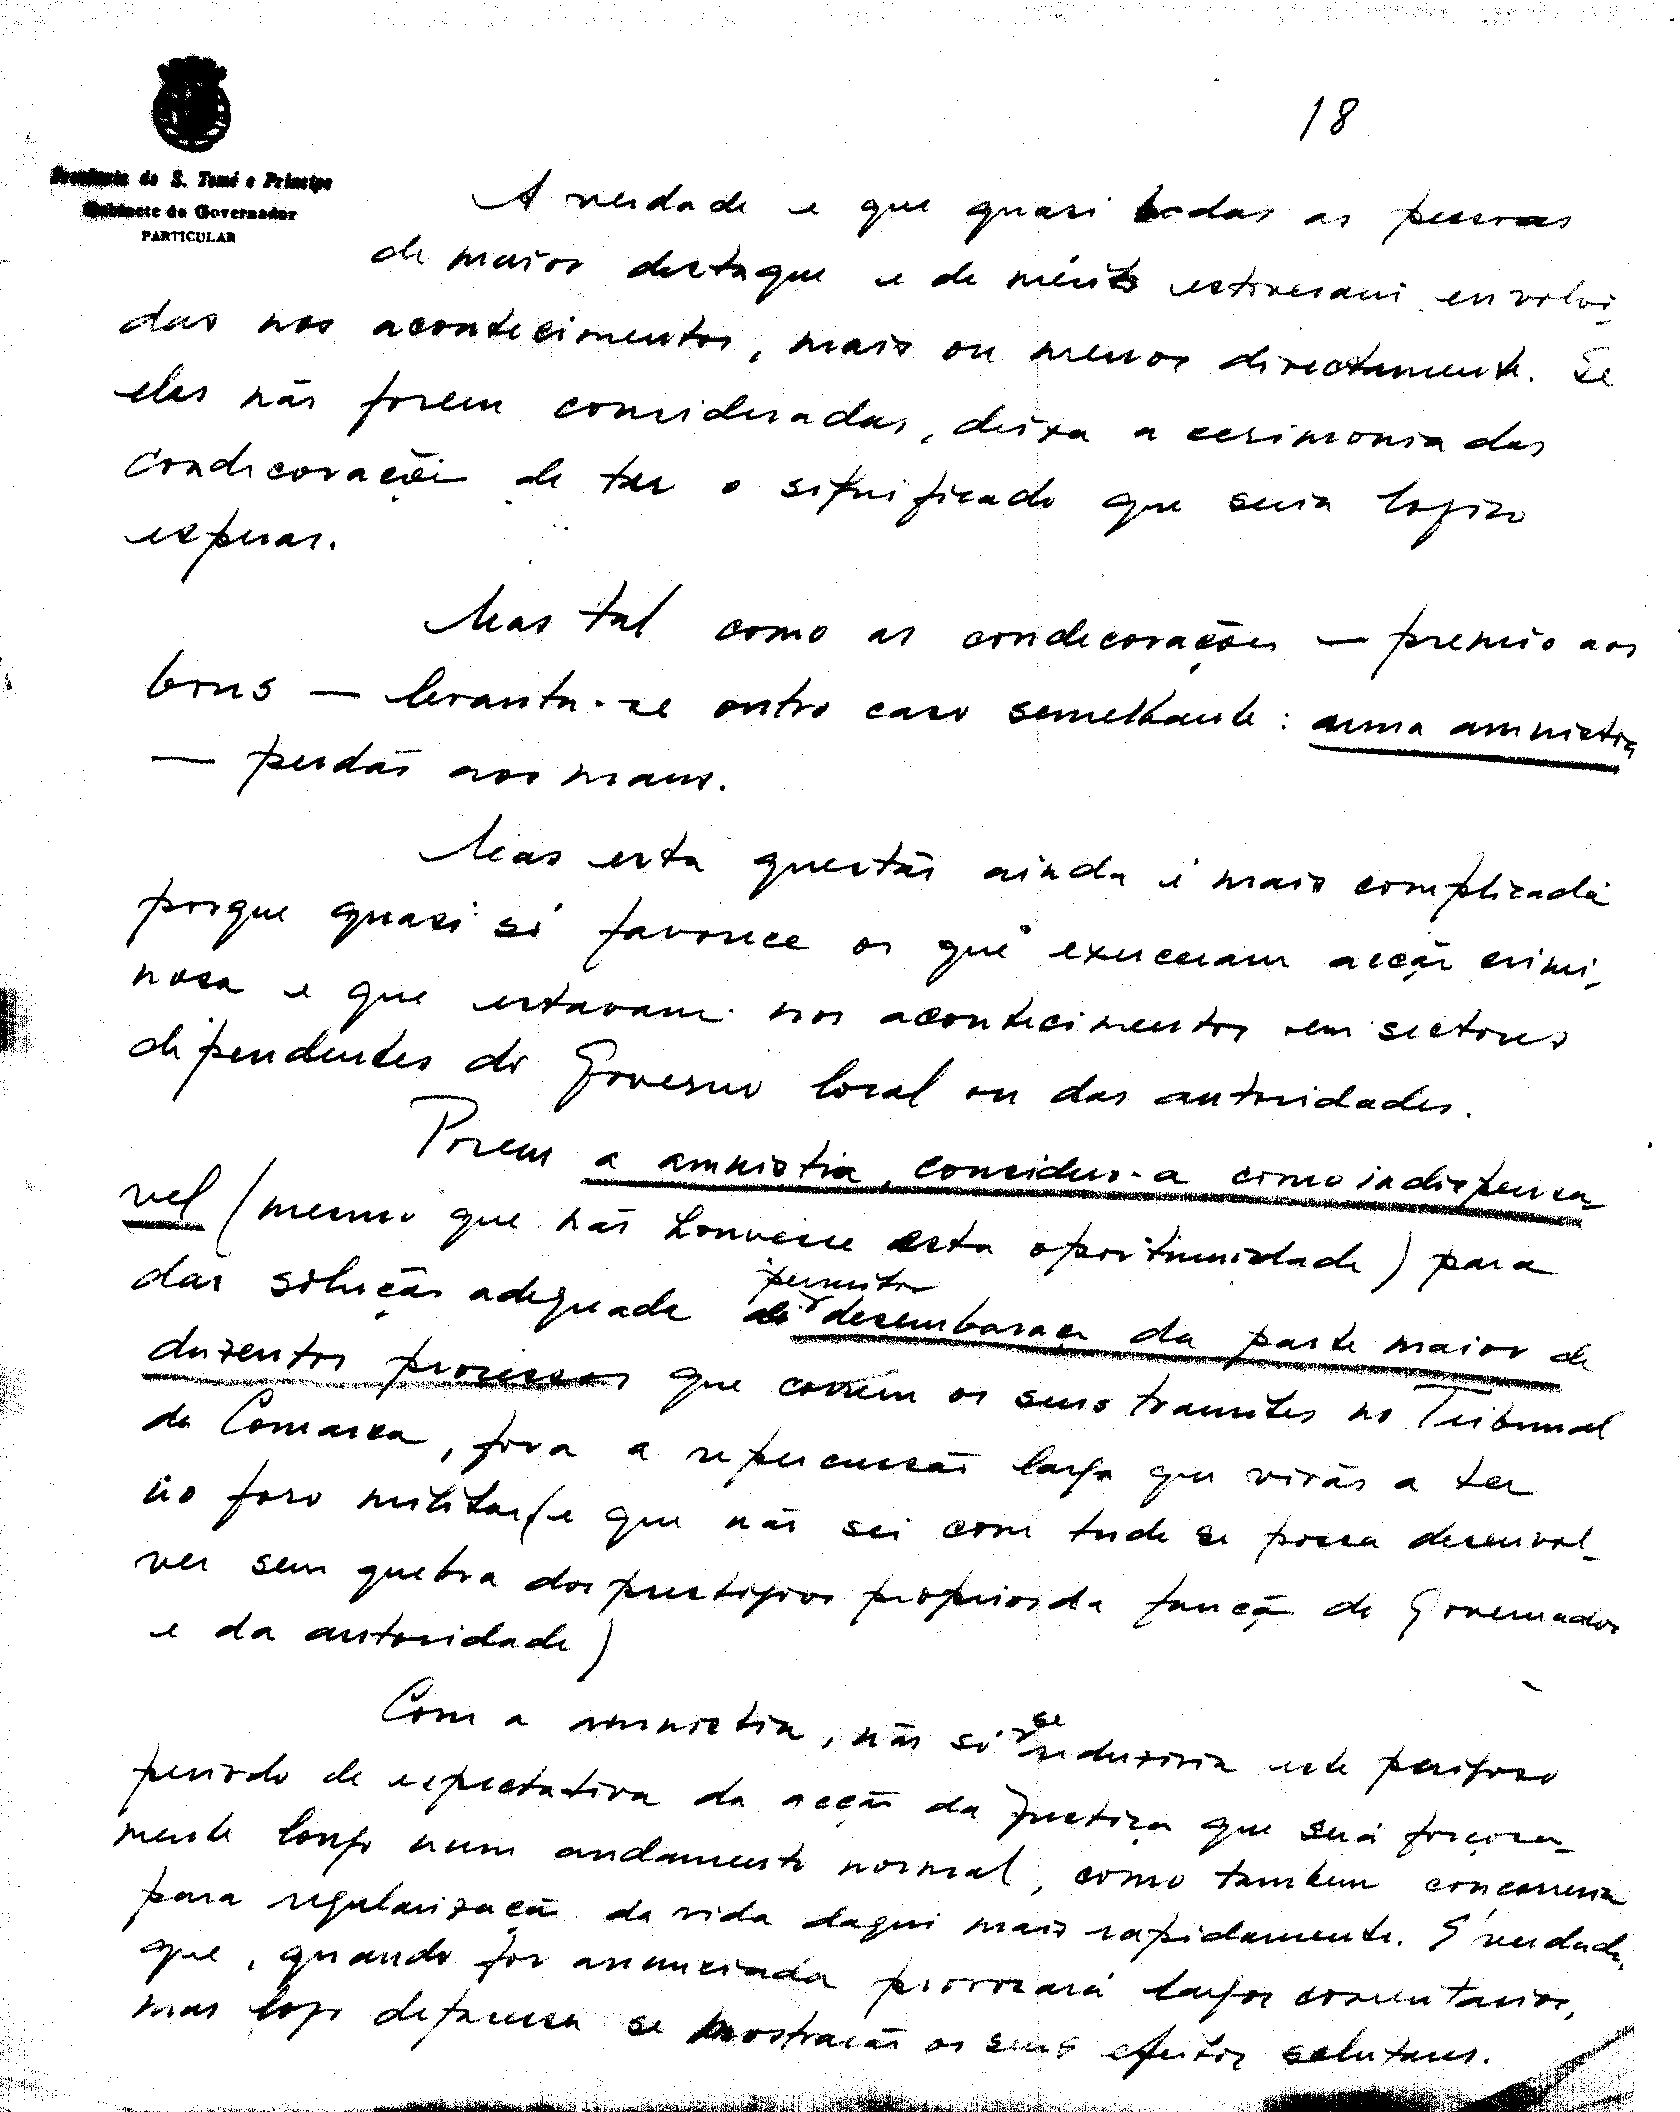 18
Provincia de S. Tomé e Príncipe
Gabinete do Governador
PARTICULAR
A verdade e que quasi todas as pessoas
de maior destaque e de mérito estiveram envolvi-
das nos acontecimentos, mais ou menos directamente. Se
elas não forem consideradas, deixa a cerimonia das
condecorações de ter o significado que seria logico
esperar.
Mas tal como as condecorações — premio aos
bons — levanta-se outro caso semelhante: uma amnistia
— perdão aos maus.
Mas esta questão ainda é mais complicada
porque quasi só favorece os que exerceram acção crimi-
nosa e que estavam nos acontecimentos em sectores
dependentes do Governo local ou das autoridades.
Porem a amnistia, considero-a como indispensa
vel (mesmo que não houvesse esta oportunidade) para
dar solução adequada
permitir
desembaraçar da parte maior de
duzentos processos que correm os seus tramites no Tribunal
da Comarca, fora a repercussão larga que virão a ter
no foro militar (e que não sei como tudo se possa desenvol-
ver sem quebra dos prestigios proprios da função de Governador
e da autoridade)
Com a amnistia, não só se reduziria este perigoso
periodo de espectativa da acção da Justiça que será forçosa-
mente longo num andamento normal, como tambem concorreria
para regularização da vida daqui mais rapidamente. É verdade
que, quando for anunciada provocará largos comentarios,
mas logo depressa se mostrarão os seus efeitos salutares.